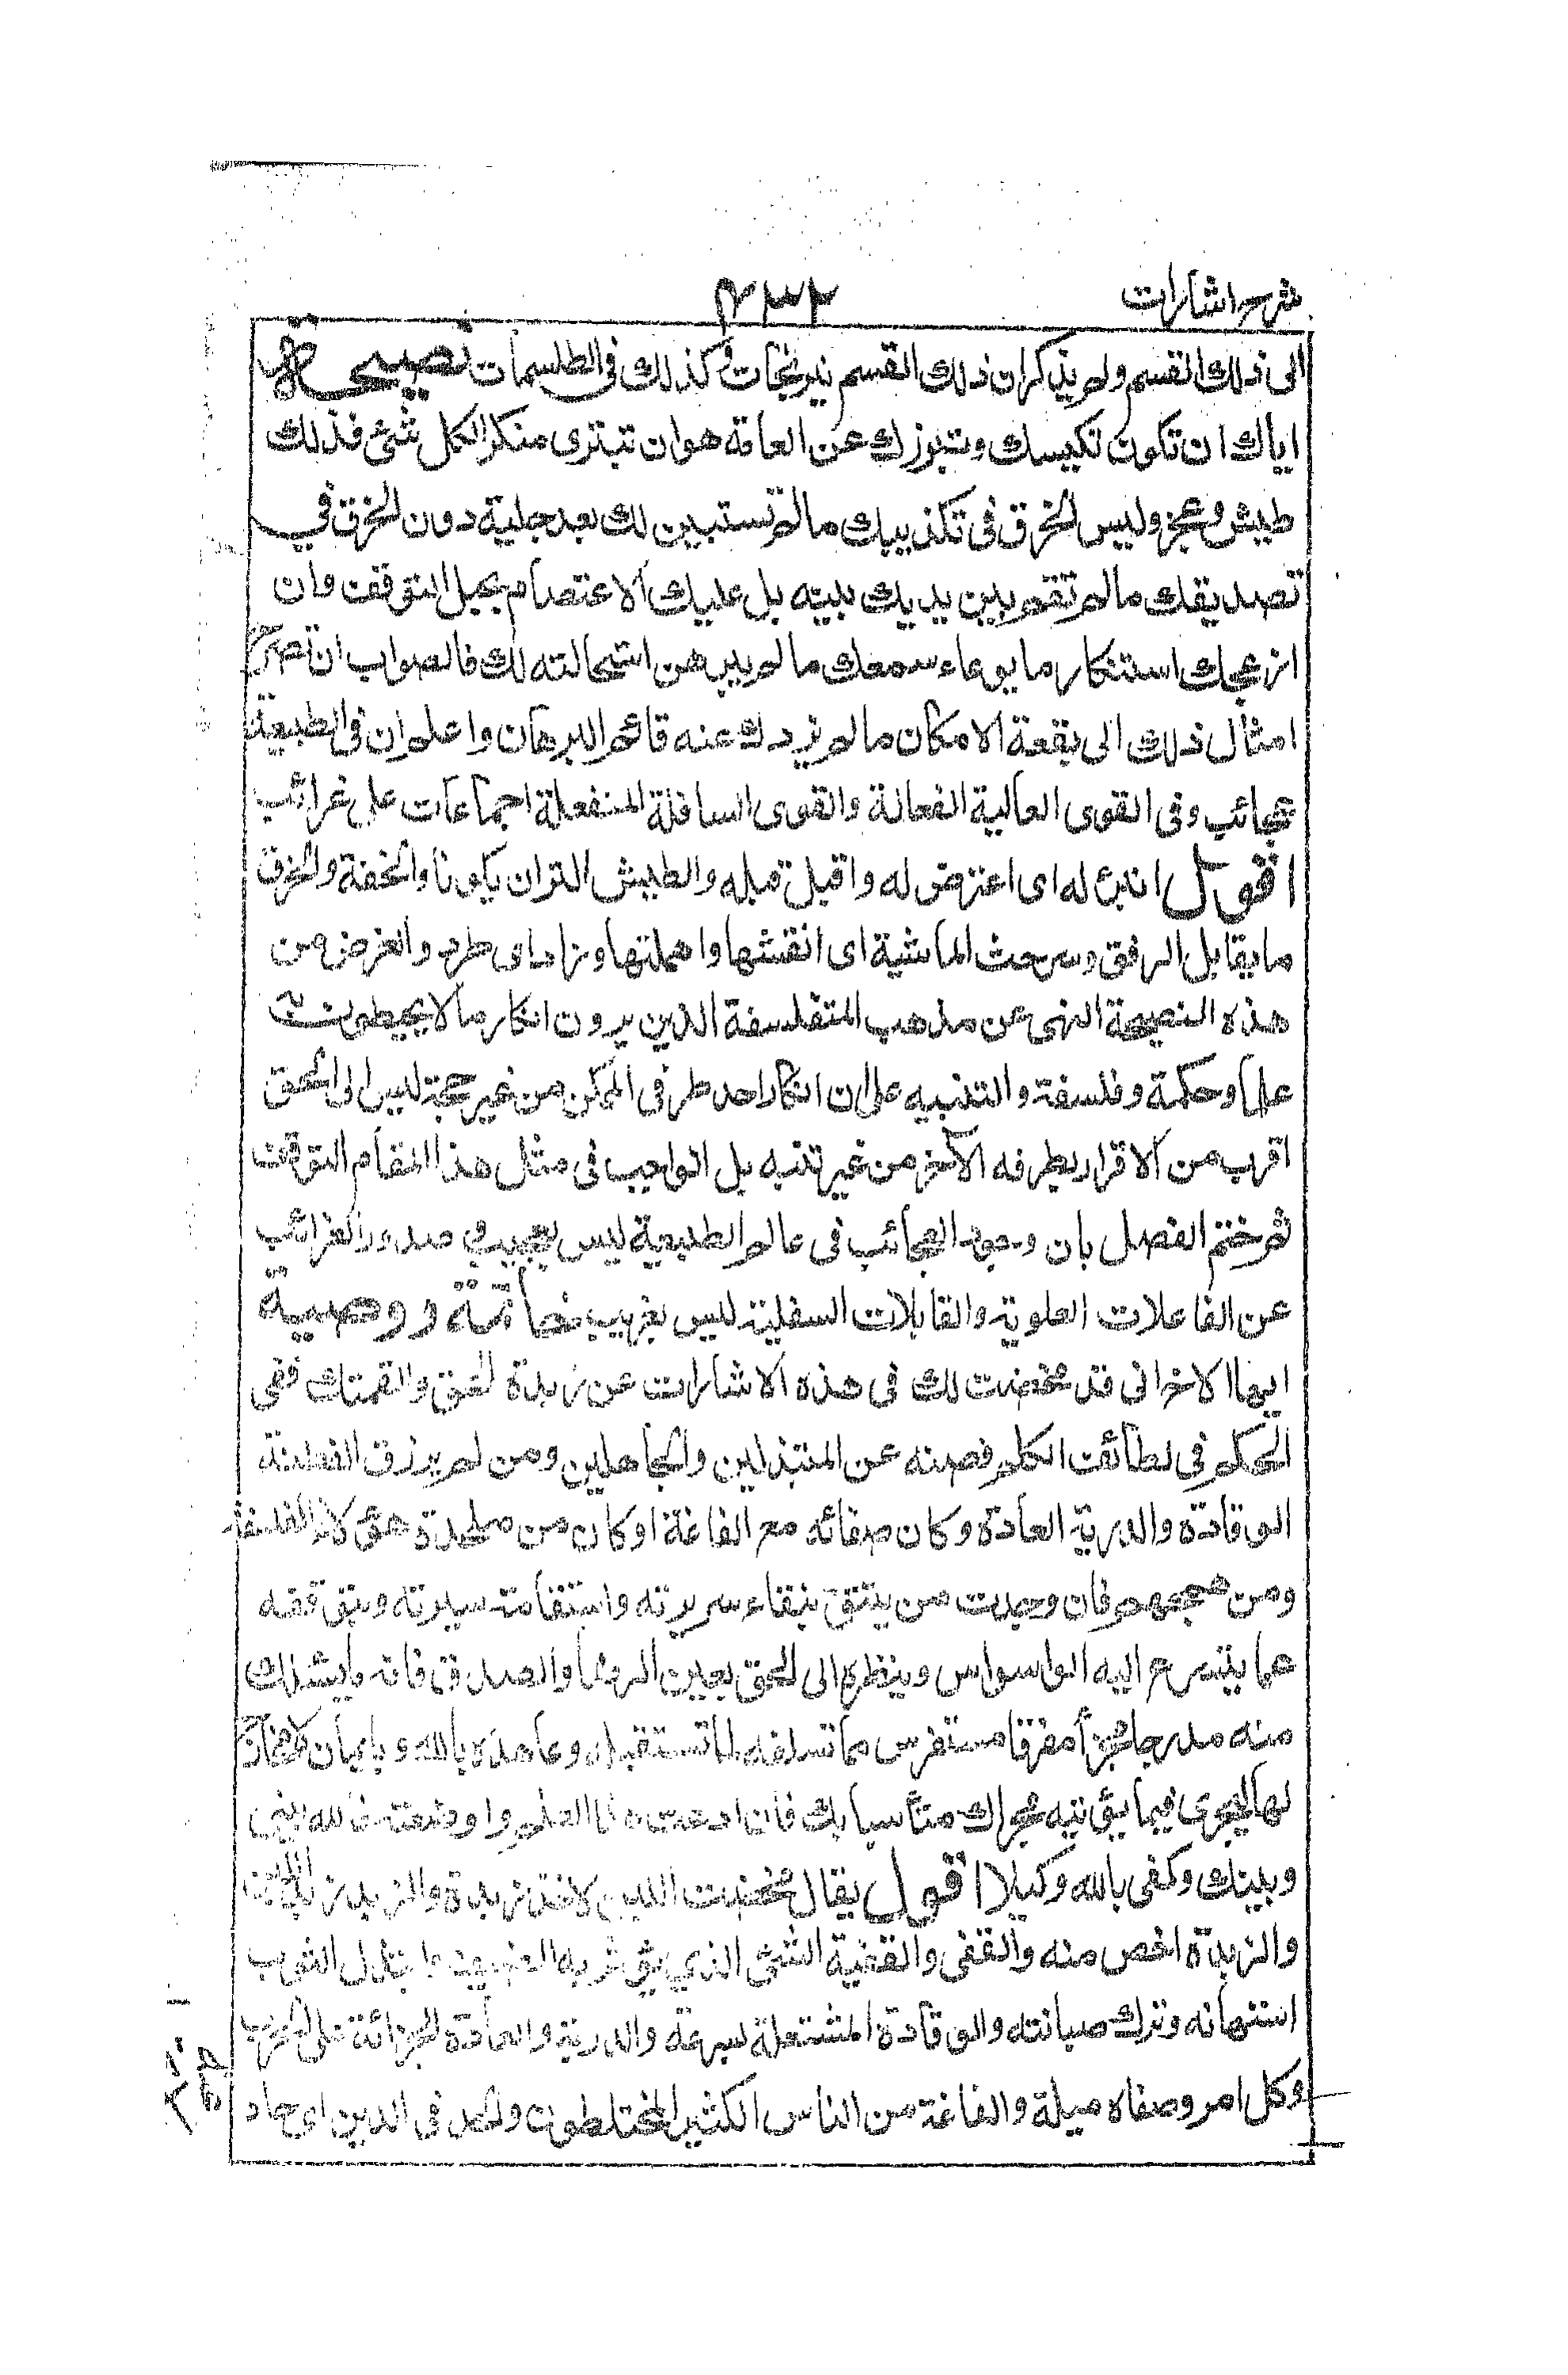 شرح اشارات
٤٣٢
الى ذلك القسم ولم يذكر ان ذلك القسم نيرنجات وكذلك فى الطلسمات نصيحة
اياك ان تكون تكيسك وتبرزك عن العامة هو ان تبترى منكرا لكل شئ فذلك
طيش وعجز وليس الخرق فى تكذيبك مالم تستبين لك بعد جلية دون الخرق في
تصديقك مالم تقم بين يديك بينه بل عليك الاعتصام بحبل التوقف وان
ازعجك استنكار ما يوعاه سمعك مالم يبرهن استحالته لك فالصواب ان تسرح
امثال ذلك الى بقعة الامكان مالم يزدك عنه قائم البرهان واعلم ان فى الطبيعة
عجائب وفى القوى العالية الفعالة والقوى السافلة المنفعلة اجتماعات على غرائب
اقول انبرئ له اى اعترض له واقبل قبله والطيش النزان يكونا والخفة والخرق
ما يقابل الرفق وسرحت الماشية اى انفشتها واهملتها وزاد اى طرد والغرض من
هذه النصيحة النهى عن مذهب المتفلسفة الذين يرون انكار مالا يحيطون به
علما وحكمة وفلسفة والتنبيه على ان انكار احد طرفى الممكن من غير حجة ليس الى الحق
اقرب من الاقرار بطرفه الآخر من غير تنبه بل الواجب فى مثل هذا المقام التوقف
ثم ختم الفصل بان وجود العجائب فى عالم الطبيعة ليس بعجيب وفى صدور الغرائب
عن الفاعلات العلوية والقابلات السفلية ليس بغريب خاتمة ووصية
ايها الاخ انى قد مخضت لك فى هذه الاشارات عن زبدة الحق والقمتك قفى
الحكم فى لطائف الكلم فصنه عن المبتذلين والجاهلين ومن لم يرزق الفطنة
الوقادة والدربة العادة وكان صغائه مع الغاغة او كان من ملحدة هؤلاء الفلاسفة
ومن همجهم فان وجدت من يثق بنقاء سريرته واستقامة سيرته وبتوقفه
عما يتسرع اليه الوسواس وينظره الى الحق بعين الرضا والصدق فاته مايسئلك
منه مدرجا مجزأ مفرقا مستفرس مما تسلفه لما تستقبله وعاهده بالله وبايمان لامخارج
لها ليجرى فيما يؤتيه مجراك متأسيا بك فان اذعت هذا العلم او اضعته فالله بينى
وبينك وكفى بالله وكيلا اقول يقال مخضت اللبن لاخذ زبدة والزبد زبد اللبن
والزبدة اخص منه والقفى والقفية الشئ الذي يؤثر به الضيف وابتذال الثوب
استهانه وترك صيانته والوقادة المشتعلة بسرعة والدربة والعادة الجرائة على الحرب
وكل امر وصغاه ميله والغاغة من الناس الكثير المختلطون والحد فى الدين اى حاد